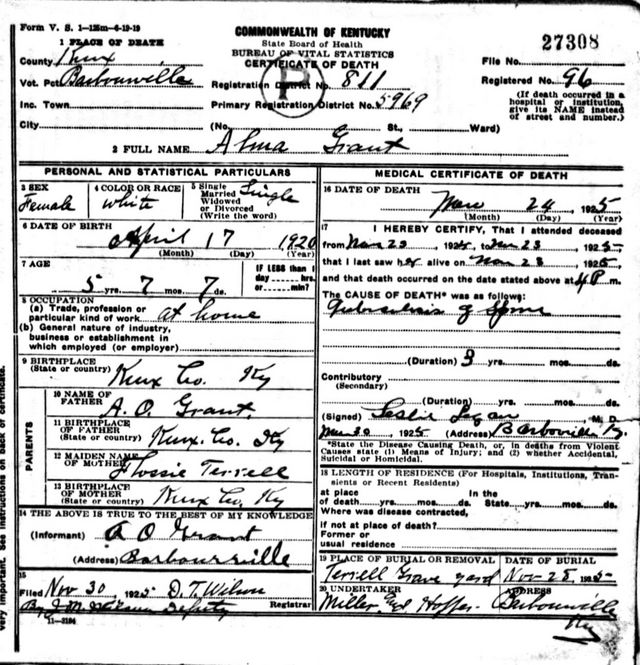 Form V. S. 1-125m-6-19-19
COMMONWEALTH OF KENTUCKY
State Board of Health
BUREAU OF VITAL STATISTICS
CERTIFICATE OF DEATH
27308
1 PLACE OF DEATH
County Knox
Vot. Pct Barbourville
Inc. Town
City
Registration District No. 811
Primary Registration District No. 5969
P
File No.
Registered No. 96
(If death occurred in a
hospital or institution,
give its NAME instead
of street and number.)
(No. St., Ward)
2 FULL NAME Alma Grant
PERSONAL AND STATISTICAL PARTICULARS
3 SEX
Female
4 COLOR OR RACE
White
5 Single
Married
Widowed
or Divorced
(Write the word)
Single
6 DATE OF BIRTH
April 17 1920
(Month) (Day) (Year)
7 AGE
5 yrs. 7 mos. 7 ds.
IF LESS than 1
day hrs.
or min?
8 OCCUPATION
(a) Trade, profession or
particular kind of work at home
(b) General nature of industry,
business or establishment in
which employed (or employer)
9 BIRTHPLACE
(State or country)
Knox Co. Ky
PARENTS
10 NAME OF
FATHER
A. O. Grant
11 BIRTHPLACE
OF FATHER
(State or country)
Knox Co. Ky
12 MAIDEN NAME
OF MOTHER
Flossie Terrell
13 BIRTHPLACE
OF MOTHER
(State or country)
Knox Co. Ky
14 THE ABOVE IS TRUE TO THE BEST OF MY KNOWLEDGE
(Informant) A O Grant
(Address) Barbourville
15
Filed Nov 30, 1925 D. T. Wilson
By Deputy Registrar
11-3184
MEDICAL CERTIFICATE OF DEATH
16 DATE OF DEATH
Nov 24, 1925
(Month) (Day) (Year)
17 I HEREBY CERTIFY, That I attended deceased
from Nov 23, 1925, to Nov 23, 1925
that I last saw her alive on Nov 23, 1925,
and that death occurred on the date stated above at 4 P m.
The CAUSE OF DEATH* was as follows:
Tuberculosis of Spine
(Duration) 3 yrs. mos. ds.
Contributory
(Secondary)
(Duration) yrs. mos. ds.
(Signed) Leslie Logan M. D.
Nov 30 1925 (Address) Barbourville Ky.
*State the Disease Causing Death, or, in deaths from Violent
Causes state (1) Means of Injury; and (2) whether Accidental,
Suicidal or Homicidal.
18 LENGTH OF RESIDENCE (For Hospitals, Institutions, Transients
or Recent Residents)
at place
of death yrs. mos. ds.
In the
State yrs. mos. ds.
Where was disease contracted,
if not at place of death?
Former or
usual residence
19 PLACE OF BURIAL OR REMOVAL
Terrell Grave yard
DATE OF BURIAL
Nov 25, 1925
20 UNDERTAKER
Miller
ADDRESS
Barbourville
Ky
very important. See instructions on back of certificate.